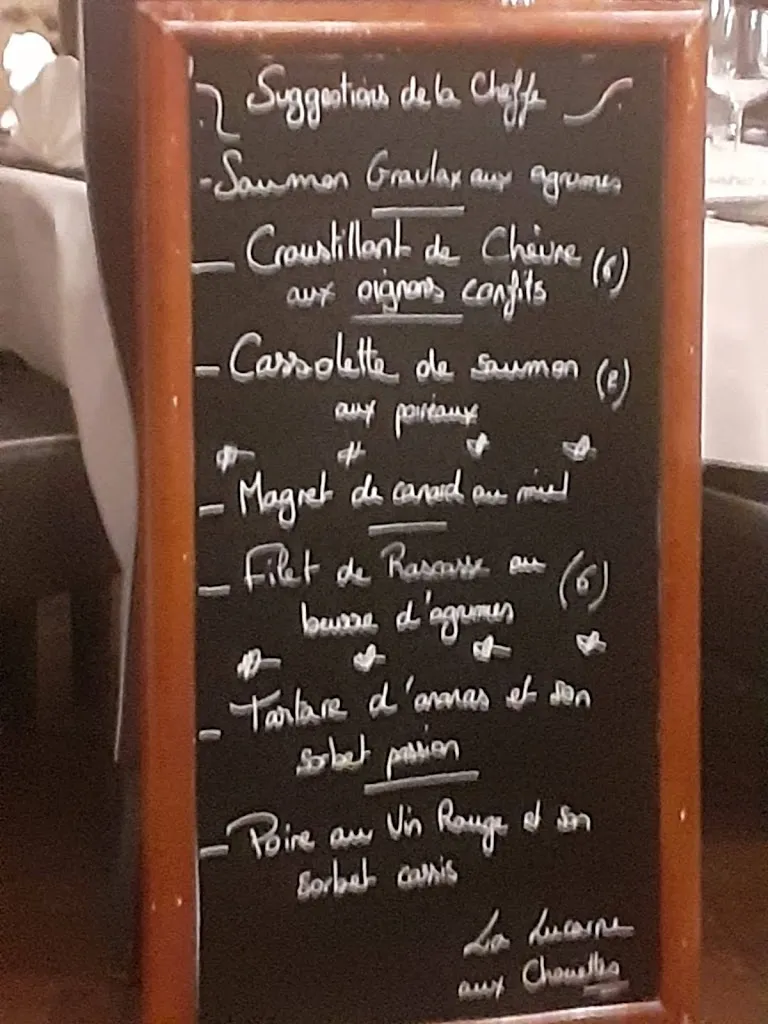 Suggestions de la Cheffe
- Saumon Gravlax aux agrumes
- Croustillant de Chèvre (6)
aux oignons confits
- Cassolette de saumon (2)
aux poireaux
- Magret de canard au miel
- Filet de Rascasse au (6)
beurre d'agrumes
- Tartare d'ananas et son
sorbet passion
- Poire au Vin Rouge et son
sorbet cassis
La Lucarne
aux Chouettes